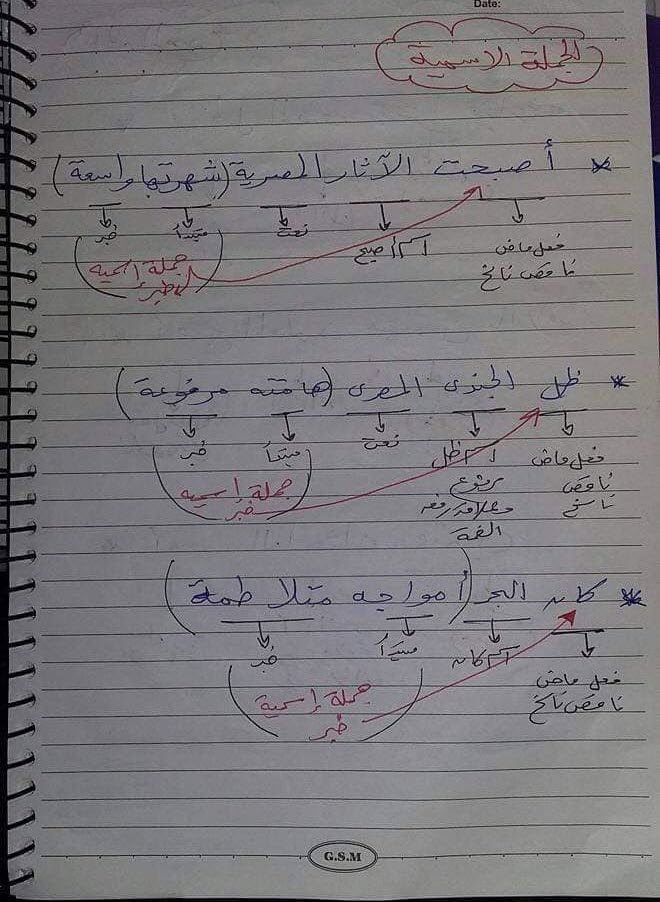 Date:
الجملة الاسمية
* أصبحت الآثار المصرية (شهرتها واسعة)
فعل ماض اسم أصبح نعت مبتدأ خبر
ناقص ناسخ جملة إسمية
خبر
* ظل الجندى المصرى (هامته مرفوعة)
فعل ماض اسم ظل نعت مبتدأ خبر
ناقص مرفوع جملة إسمية
ناسخ وعلامة رفعه خبر
الضمة
* كان البحر (أمواجه متلاطمة)
فعل ماض اسم كان مبتدأ خبر
ناقص ناسخ جملة إسمية
خبر
G.S.M